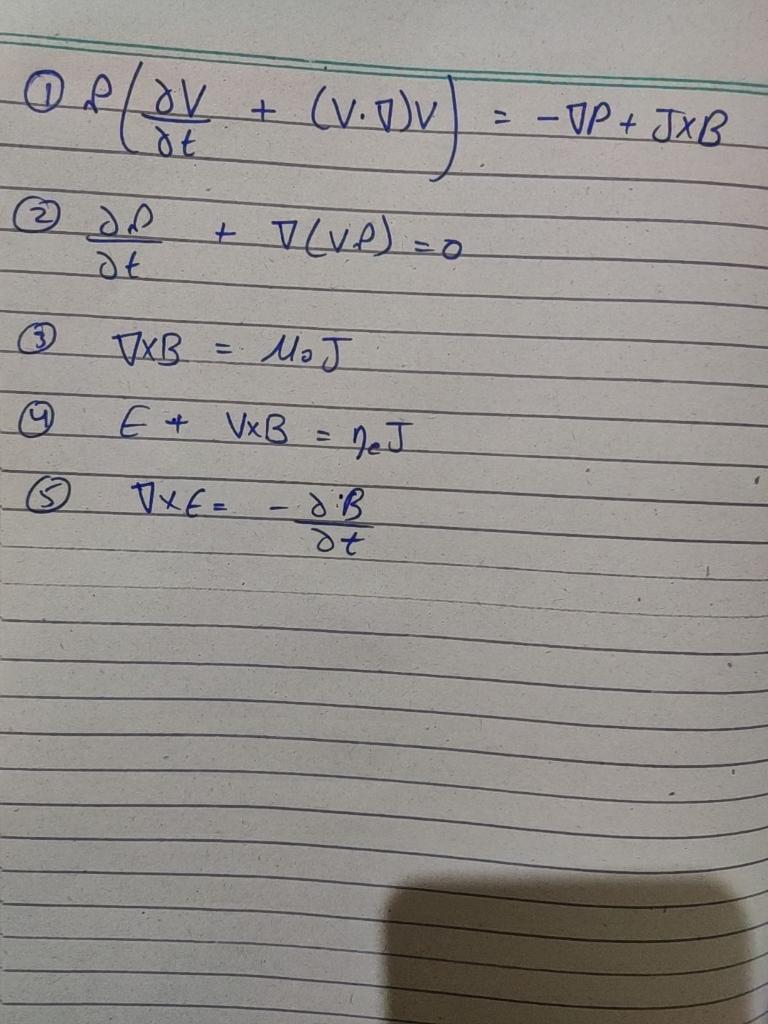 ① ρ(∂V/∂t + (V·∇)V) = -∇P + J×B
② ∂ρ/∂t + ∇(Vρ) = 0
③ ∇×B = μ₀J
④ E + V×B = ηₑJ
⑤ ∇×E = -∂B/∂t